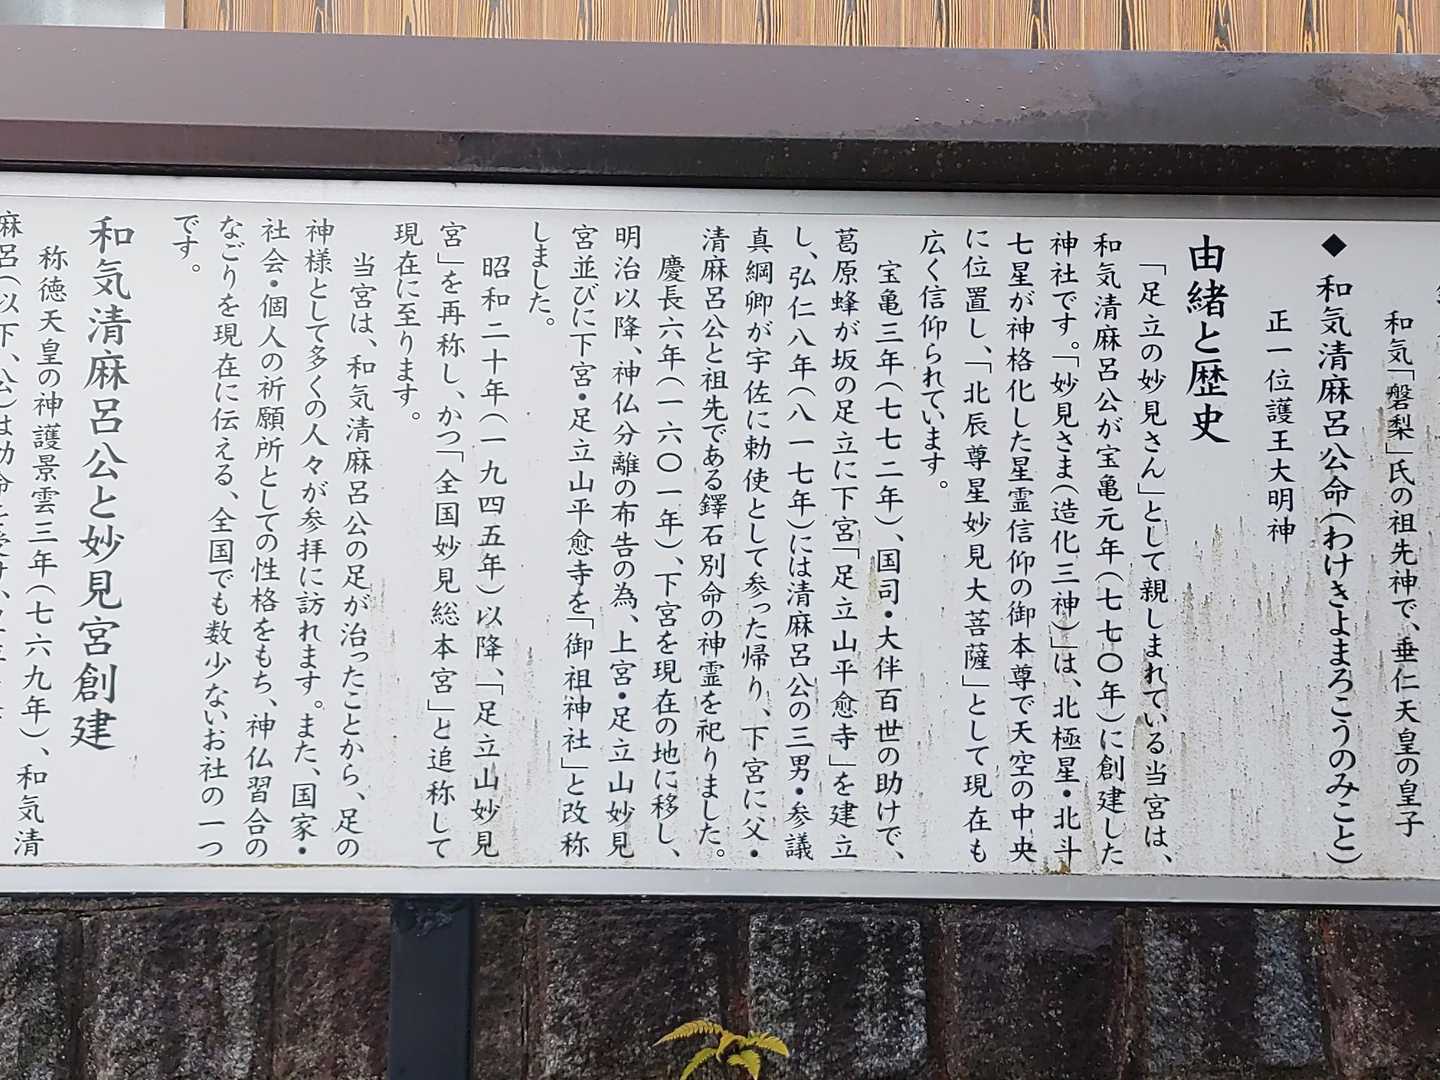 和気「磐梨」氏の祖先神で、垂仁天皇の皇子
◆ 和気清麻呂公命（わけきよまろこうのみこと）
正一位護王大明神
由緒と歴史
「足立の妙見さん」として親しまれている当宮は、
和気清麻呂公が宝亀元年（七七〇年）に創建した
神社です。「妙見さま（造化三神）」は、北極星・北斗
七星が神格化した星霊信仰の御本尊で天空の中央
に位置し、「北辰尊星妙見大菩薩」として現在も
広く信仰られています。
宝亀三年（七七二年）、国司・大伴百世の助けで、
葛原蜂が坂の足立に下宮「足立山平愈寺」を建立
し、弘仁八年（八一七年）には清麻呂公の三男・参議
真綱卿が宇佐に勅使として参った帰り、下宮に父・
清麻呂公と祖先である鐸石別命の神霊を祀りました。
慶長六年（一六〇一年）、下宮を現在の地に移し、
明治以降、神仏分離の布告の為、上宮・足立山妙見
宮並びに下宮・足立山平愈寺を「御祖神社」と改称
しました。
昭和二十年（一九四五年）以降、「足立山妙見
宮」を再称し、かつ「全国妙見総本宮」と追称して
現在に至ります。
当宮は、和気清麻呂公の足が治ったことから、足の
神様として多くの人々が参拝に訪れます。また、国家・
社会・個人の祈願所としての性格をもち、神仏習合の
なごりを現在に伝える、全国でも数少ないお社の一つ
です。
和気清麻呂公と妙見宮創建
称徳天皇の神護景雲三年（七六九年）、和気清
麻呂（以下、公）は勅命を受け、